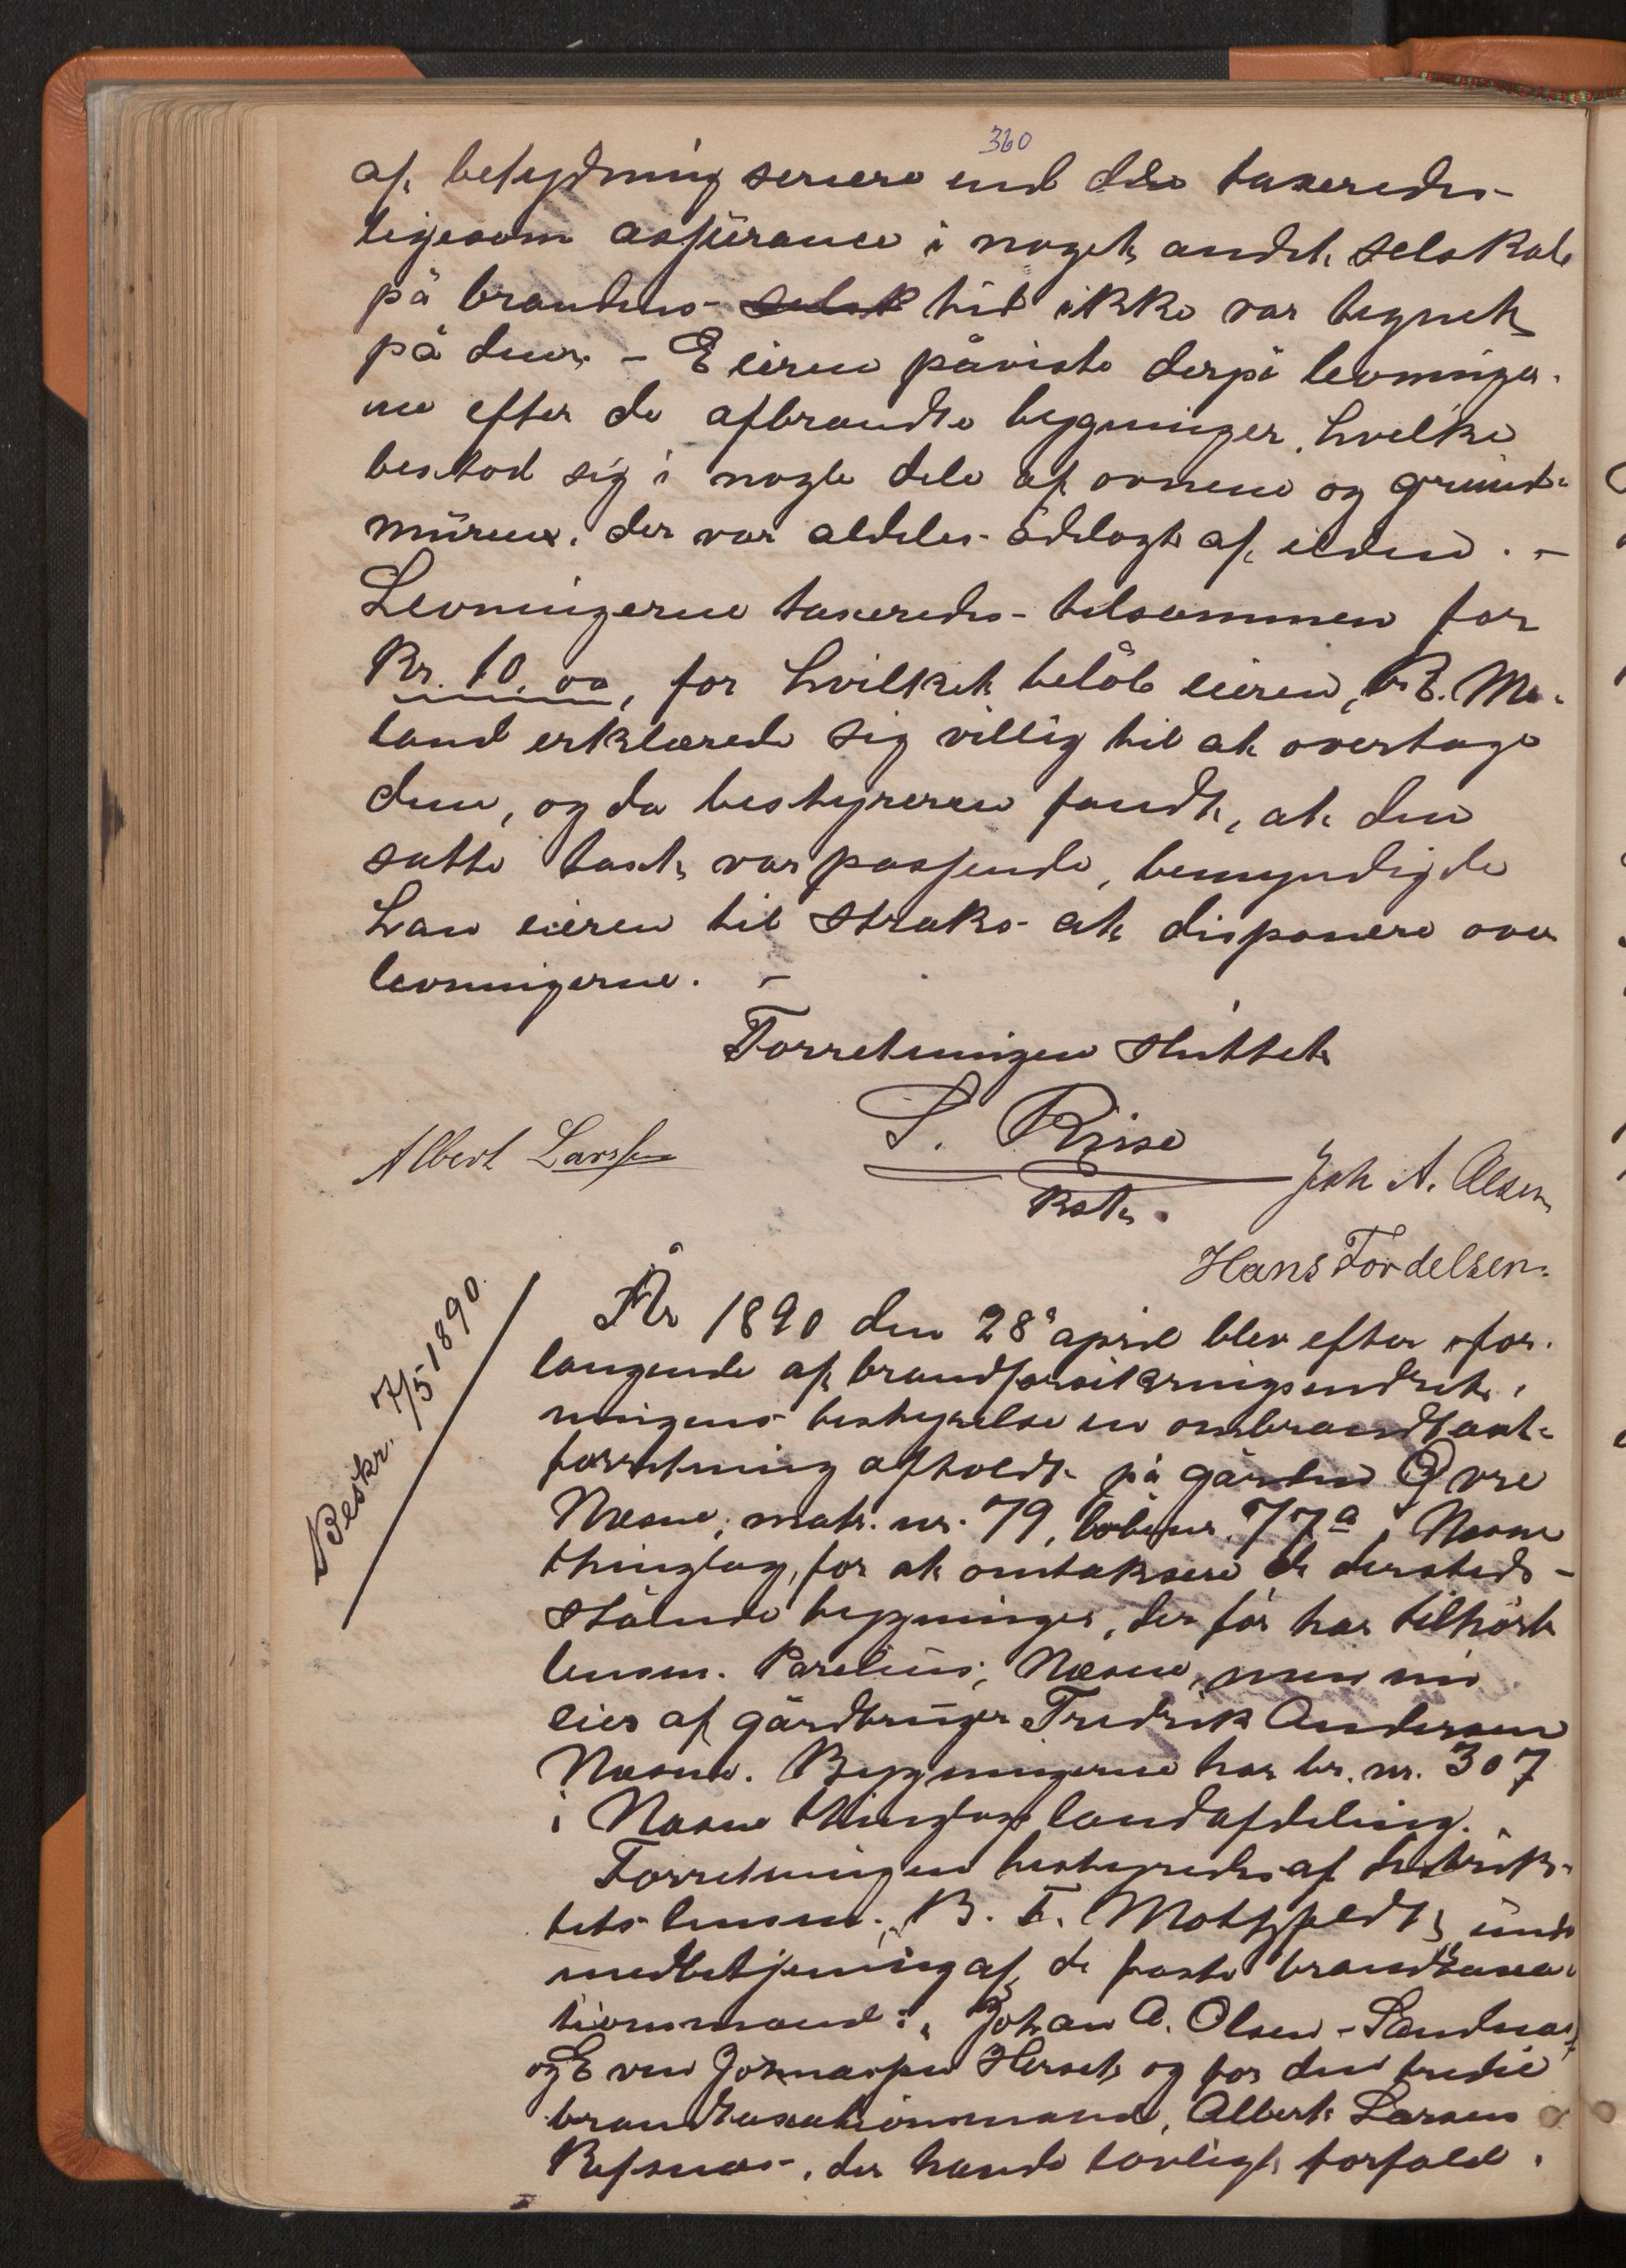 360
af betydning senere end den taxeredes
ligesom assurance i noget andet selskab
på brandens selsk tid ikke var tegnet
på dem. – Eieren påviste derpå levninger-
ne efter de afbrændte bygninger, hvilke
bestod sig i nogle dele af ovnene og grund-
muren, der var aldeles ødelagt af ilden. –
Levningerne taxeredes tilsammen for
Kr. 10,00, for hvilket beløb eieren, B. Me-
land erklærede sig villig til at overtage
dem, og da bestyreren fandt, at den
satte taxt var passende, bemyndigede
han eieren til straks at disponere over
levningerne. –
Forretningen sluttet
Albert Larsen
Riise
Kst.
Joh A. Olsen
Hans Fordelsen.
Beskr. 7/5 1890.
År 1890 den 28 april blev efter for-
langende af brandforsikringsindret-
ningens bestyrelse en ombrandtaxt-
forretning afholdt på gården Øvre
Nesne, matr. nr. 79, løbenr. 77a, Nesne
thinglag, for at omtaksere de dersteds
stående bygninger, der før har tilhørt
lensm. Parelius, Nesne, men nu
eies af gårdbruger Fredrik Andersen
Nesne. Bygningerne har br. nr. 307
i Nesne thinglags landafdeling.
Forretningen bestyredes af distrik-
tets lensm. B. T. under
medbetjening af de faste brandtaxa-
tionsmænd: Johan A. Olsen - Sandnes
og Even Jonassen Herset og for den tredie
brandtaxationsmand, Albert Larsen
Refsnes, der havde lovligt forfald,